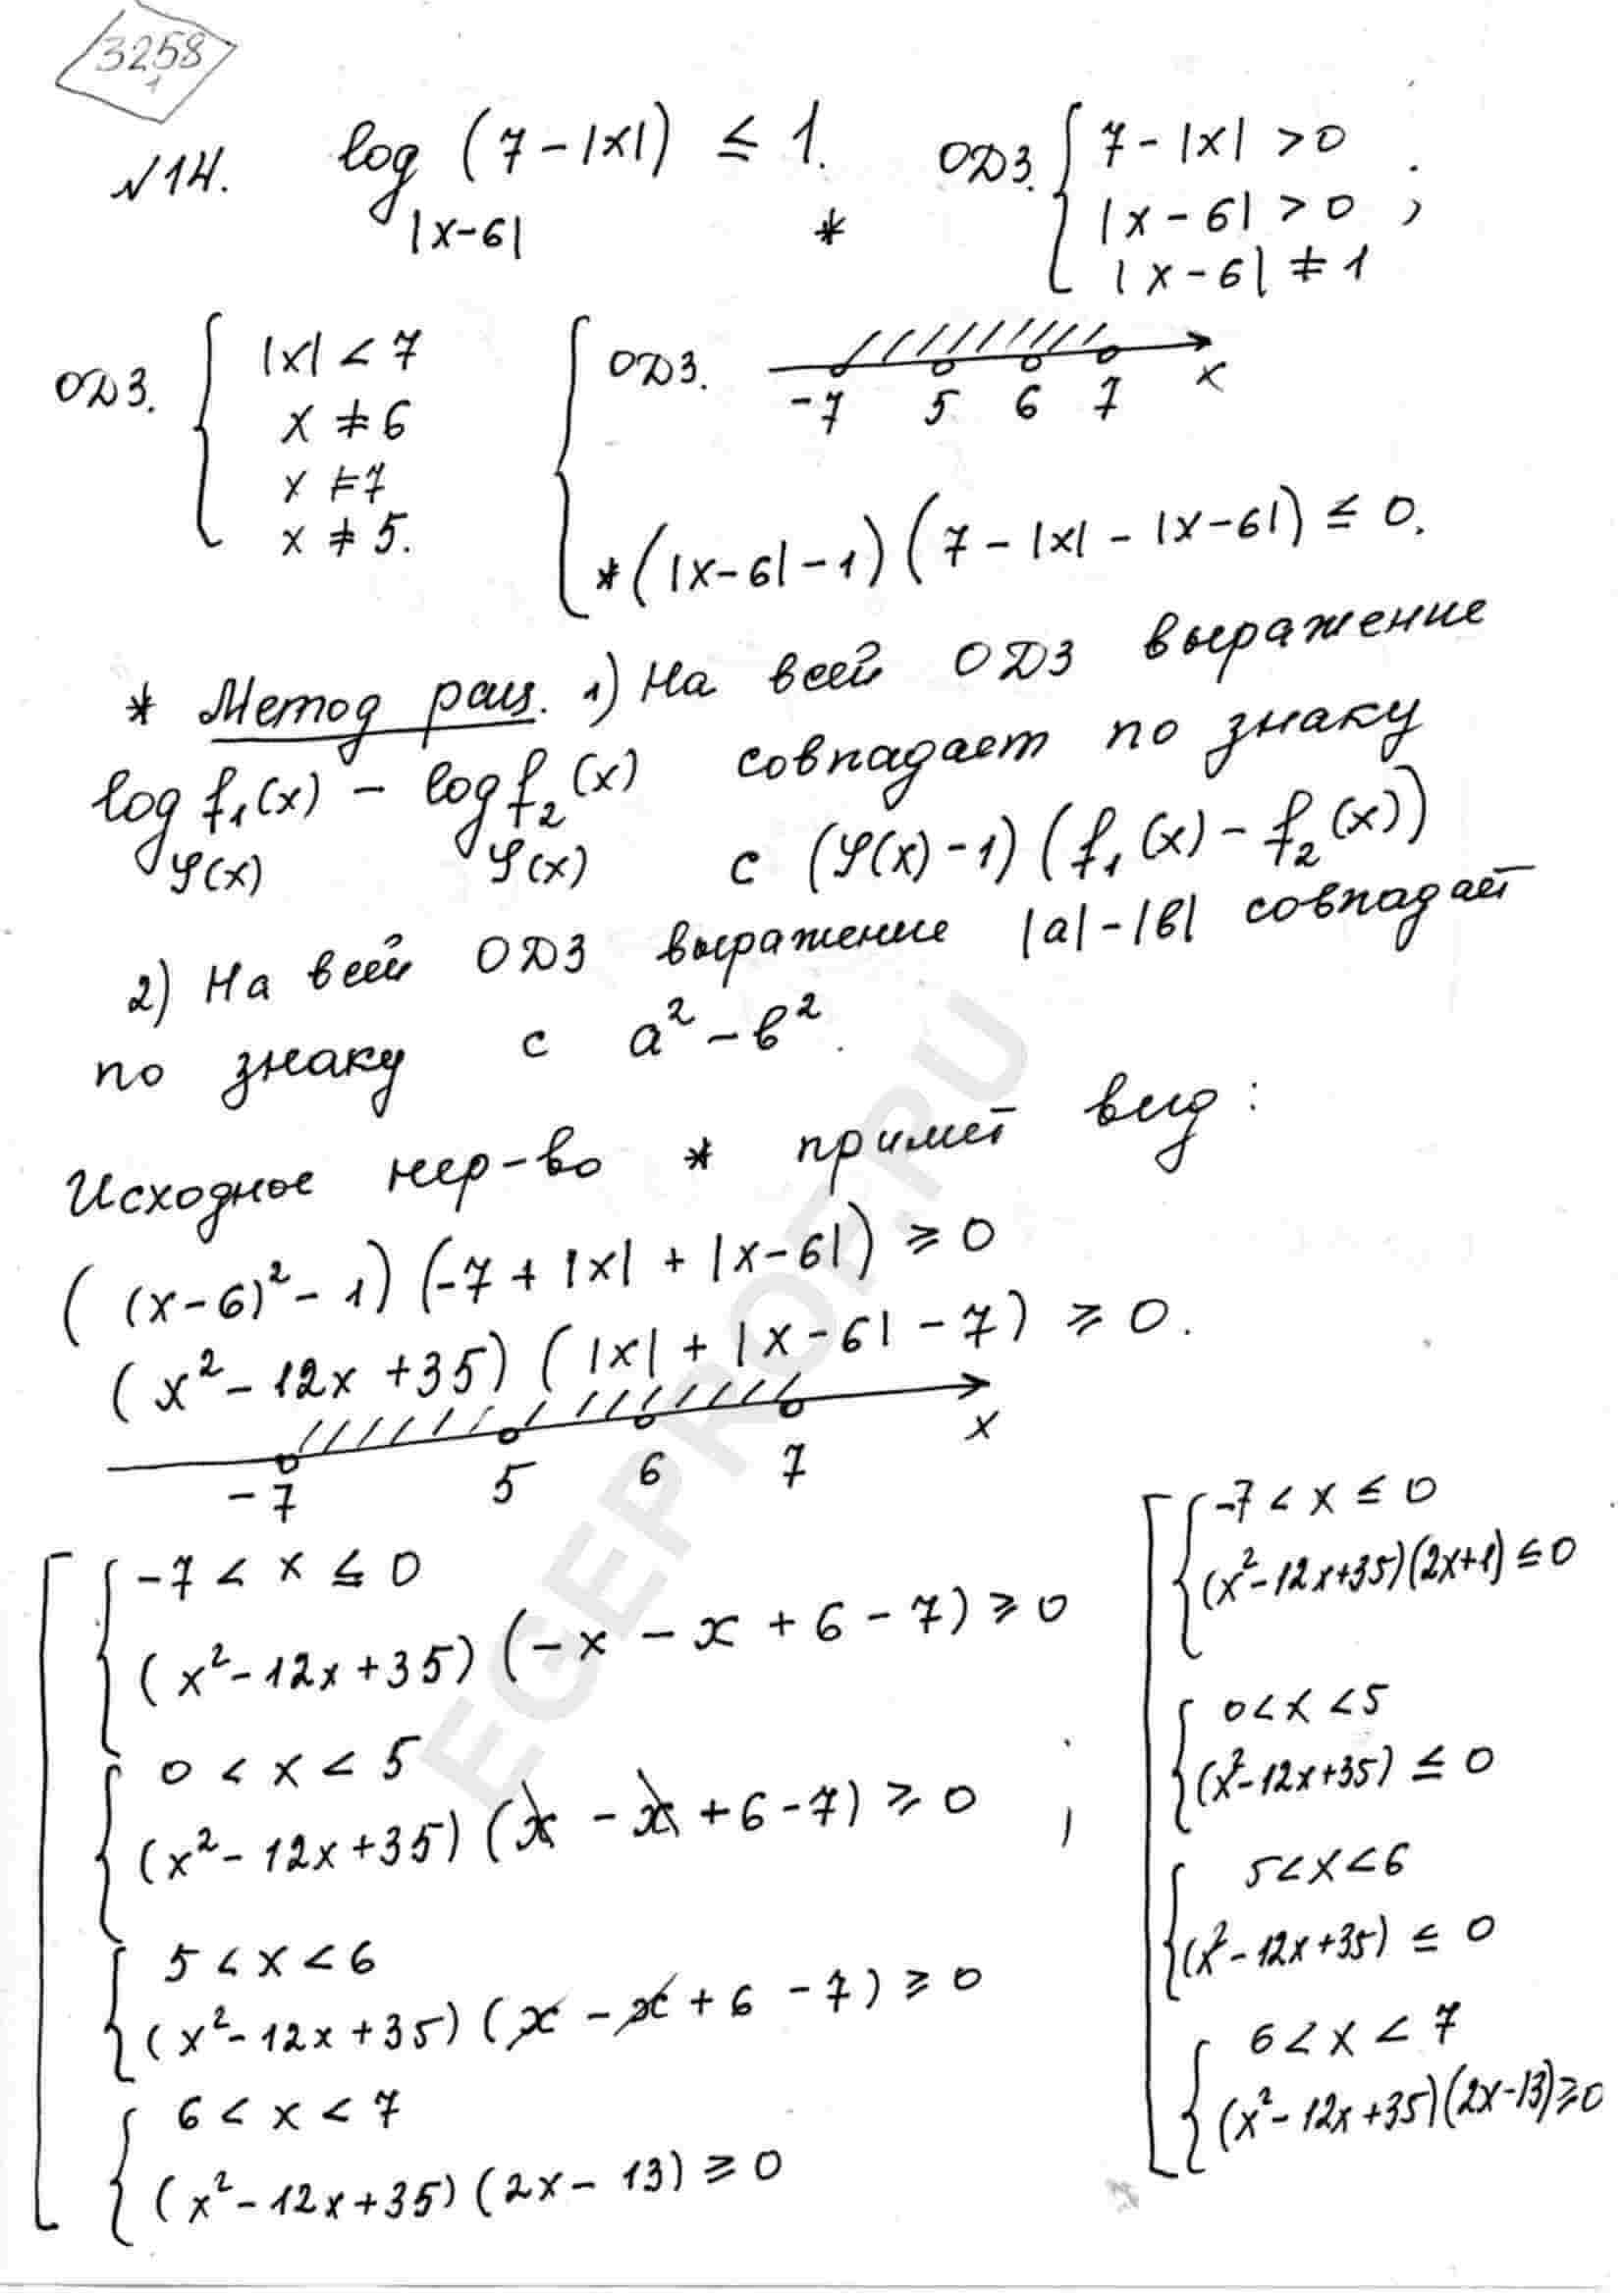 3258
1
№14. log_{|x-6|} (7-|x|) ≤ 1. * ОДЗ. { 7-|x| > 0 ; |x-6| > 0 ; |x-6| ≠ 1
ОДЗ. { |x| < 7
x ≠ 6
x ≠ 7
x ≠ 5.
{ ОДЗ. -7 5 6 7 x
* (|x-6|-1)(7-|x|-|x-6|) ≤ 0.
* Метод рац. 1) На всей ОДЗ выражение
log_{φ(x)} f₁(x) - log_{φ(x)} f₂(x) совпадает по знаку
с (φ(x)-1)(f₁(x)-f₂(x))
2) На всей ОДЗ выражение |a|-|b| совпадает
по знаку с a²-b².
Исходное нер-во * примет вид:
((x-6)²-1)(-7+|x|+|x-6|) ≥ 0
(x²-12x+35)(|x|+|x-6|-7) ≥ 0.
-7 5 6 7 x
[ { -7 < x ≤ 0
(x²-12x+35)(-x-x+6-7) ≥ 0
{ 0 < x < 5
(x²-12x+35)(x-x+6-7) ≥ 0 ;
{ 5 < x < 6
(x²-12x+35)(x-x+6-7) ≥ 0
{ 6 < x < 7
(x²-12x+35)(2x-13) ≥ 0
[ { -7 < x ≤ 0
(x²-12x+35)(2x+1) ≤ 0
{ 0 < x < 5
(x²-12x+35) ≤ 0
{ 5 < x < 6
(x²-12x+35) ≤ 0
{ 6 < x < 7
(x²-12x+35)(2x-13) ≥ 0
EGEPROF.RU